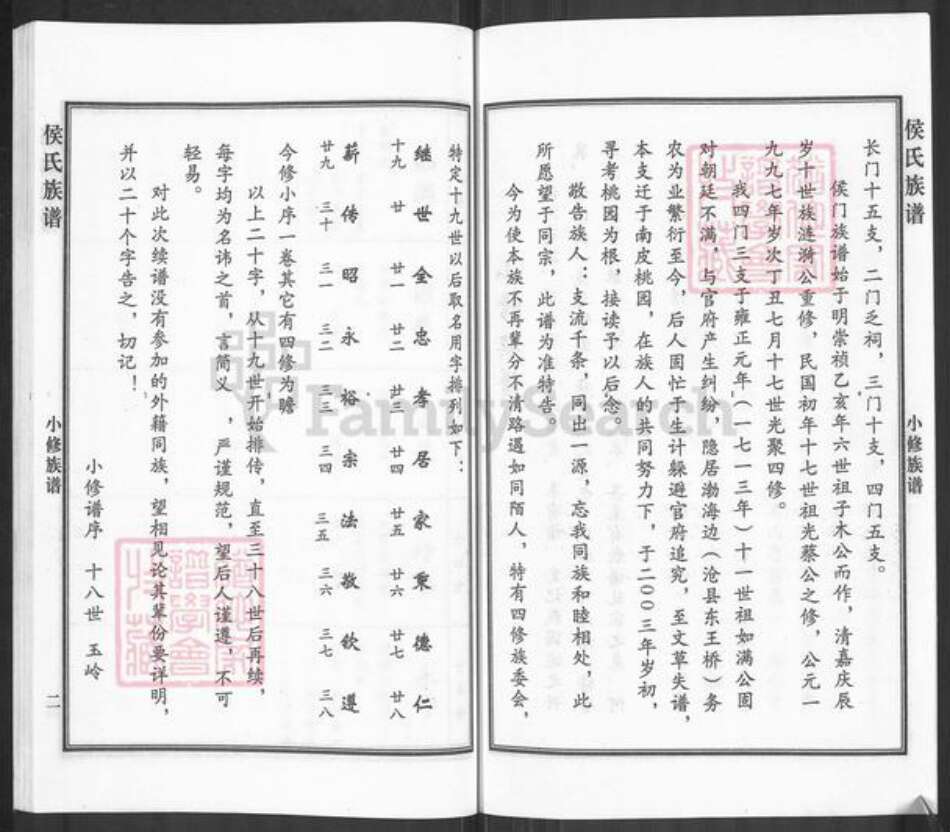 侯氏族谱
小修族谱
长门十五支，二门乏祠，三门十支，四门五支。
侯门族谱始于明崇祯乙亥年六世祖子木公而作，清嘉庆辰
岁十世族涟漪公重修，民国初年十七世祖光蔡公之修，公元一
九九七年岁次丁丑七月十七世光聚四修。
我四门三支于雍正元年（一七一三年）十一世祖如满公因
对朝廷不满，与官府产生纠纷，隐居渤海边（沧县东王桥）务
农为业繁衍至今，后人因忙于生计躲避官府追究，至文草失谱，
本支迁于南皮桃园，在族人的共同努力下，于二00三年岁初，
寻考桃园为根，接读予以后念。
敬告族人：支流千条，同出一源，忘我同族和睦相处，此
所愿望于同宗，此谱为准特告。
今为使本族不再辈分不清路遇如同陌人，特有四修族委会，
特定十九世以后取名用字排列如下：
继世全忠孝居家秉德仁
十九 廿 廿一 廿二 廿三 廿四 廿五 廿六 廿七 廿八
薪传昭永裕宗法敬钦遵
廿九 三十 三一 三二 三三 三四 三五 三六 三七 三八
今修小序一卷其它有四修为瞻
以上二十字，从十九世开始排传，直至三十八世后再续，
每字均为名讳之首，言简义，严谨规范，望后人谨遵，不可
轻易。
对此次续谱没有参加的外籍同族，望相见论其辈份要详明，
并以二十个字告之，切记！
小修谱序 十八世 玉岭
侯氏族谱
小修族谱
二
FamilySearch